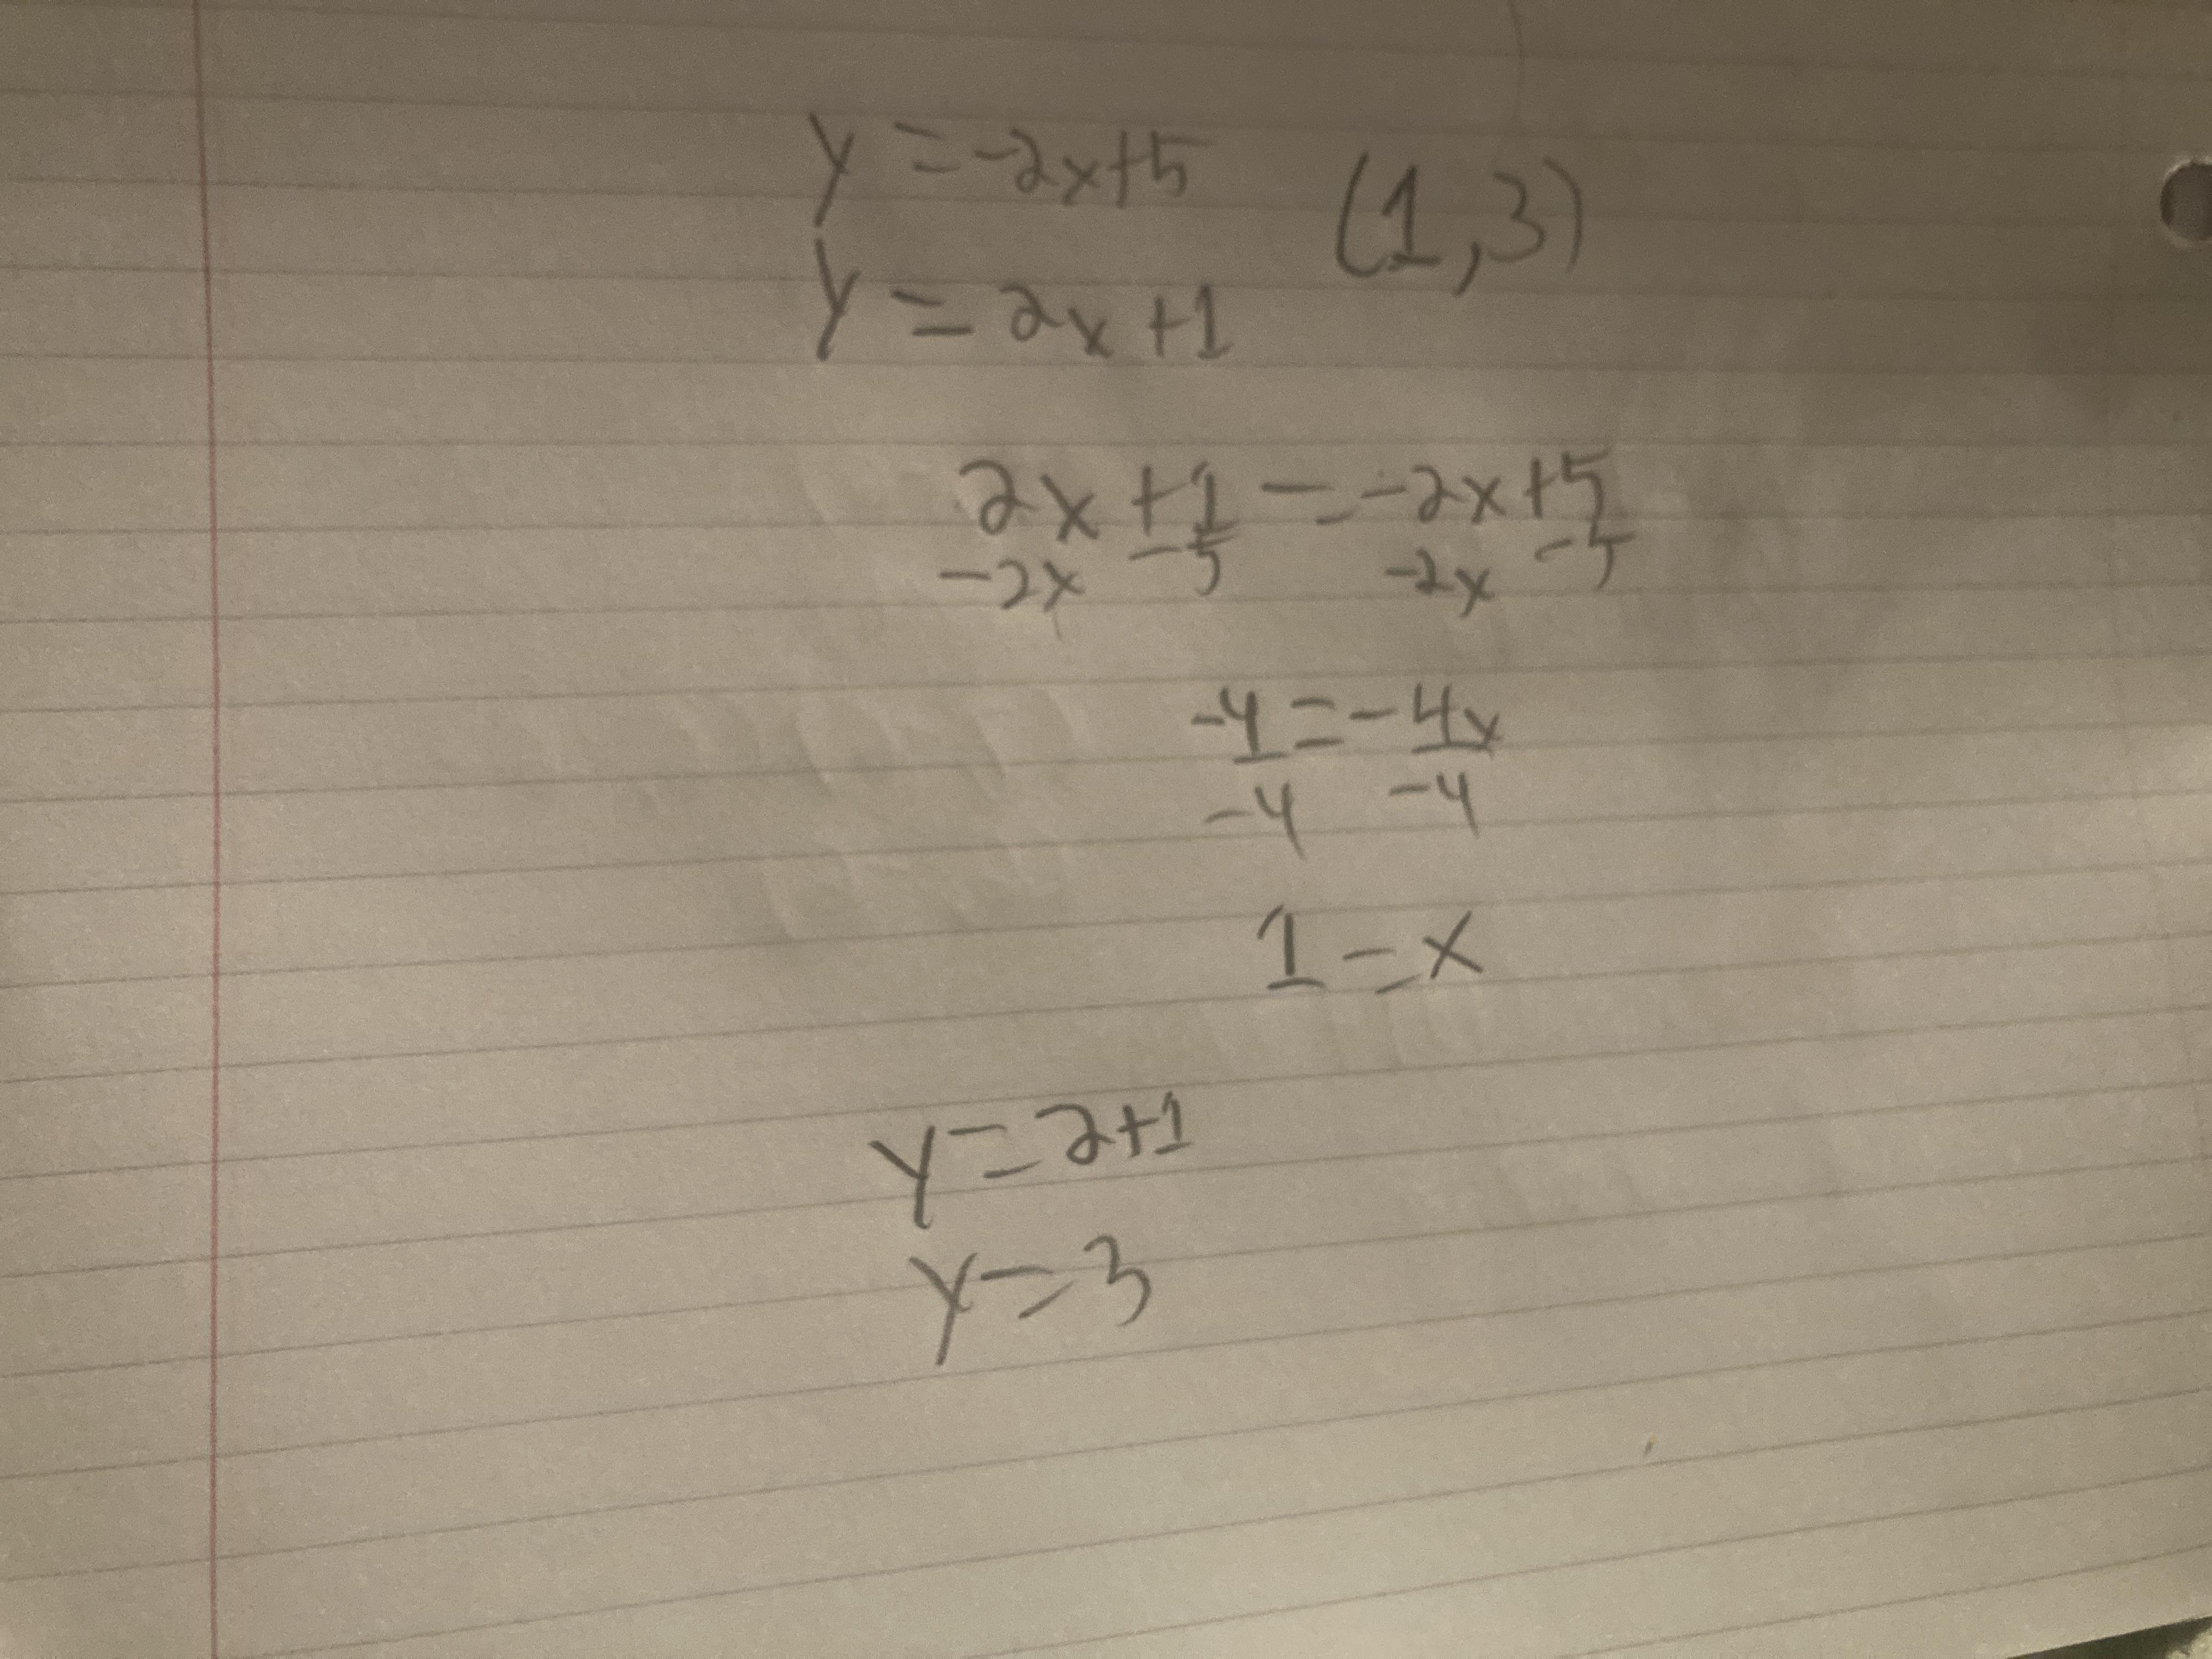 y = -2x+5 (1,3)
y = 2x+1
2x+1 = -2x+5
-2x -5 -2x -5
-4 = -4x
-4 -4
1 = x
y = 2+1
y = 3